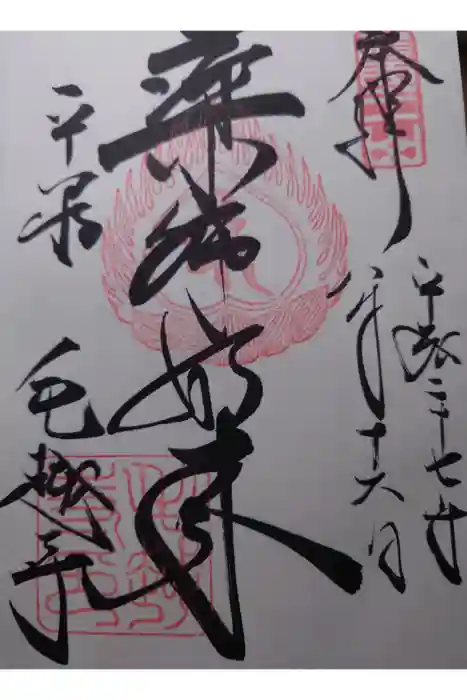 奉拝
平成二十七年
八月十六日
薬師如来
平泉
毛越寺